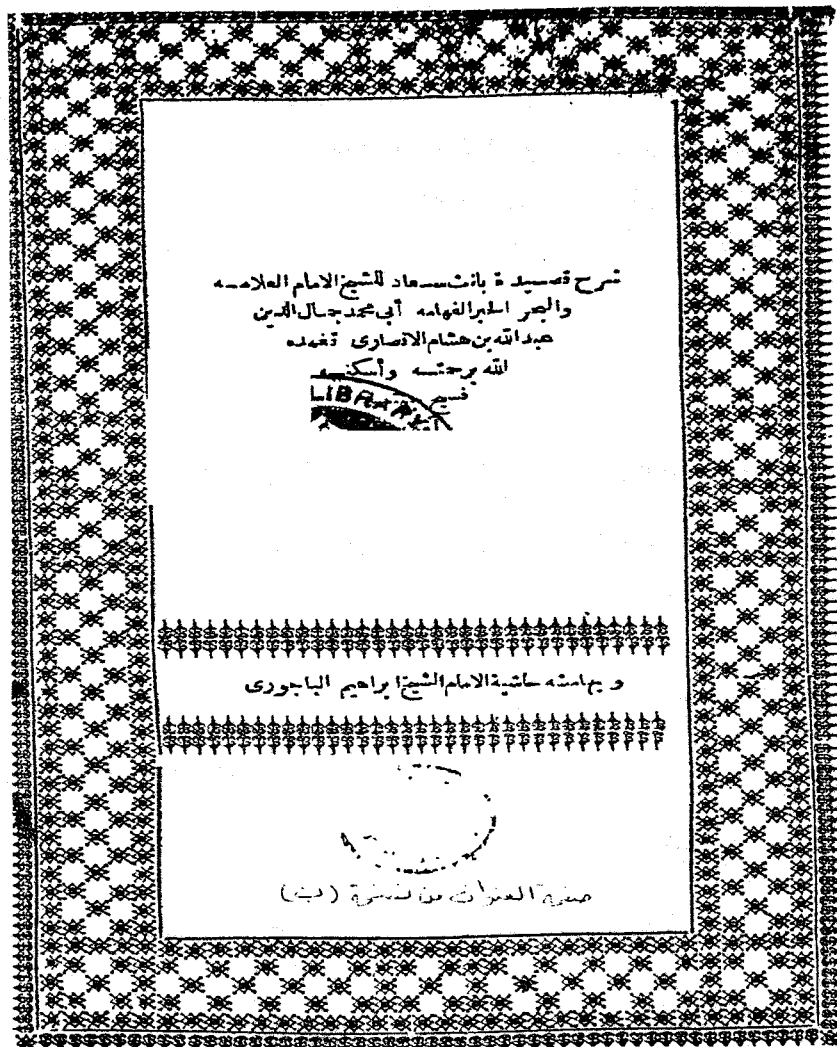 شرح قصيدة بانت سعاد للشيخ الامام العلامه
والبحر الحبر الفهامه أبى محمد جمال الدين
عبدالله بن هشام الانصارى تغمده
الله برحمته وأسكنه
فسيح
LIBRARY
و بهامشه حاشية الامام الشيخ ابراهيم الباجورى
صفحة العنوان من نسخة (ب)